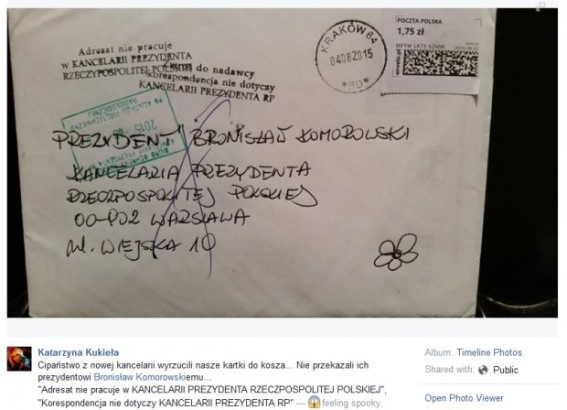 POCZTA POLSKA
1,75 zł
KRAKÓW 64
040815
Adresat nie pracuje
w KANCELARII PREZYDENTA
RZECZYPOSPOLITEJ POLSKIEJ
Zwrot do nadawcy
korespondencja nie dotyczy
KANCELARII PREZYDENTA RP
2015
PREZYDENT BRONISŁAW KOMOROWSKI
KANCELARIA PREZYDENTA
RZECZPOSPOLITEJ POLSKIEJ
00-902 WARSZAWA
ul. WIEJSKA 10
Katarzyna Kukieła
Cipaństwo z nowej kancelarii wyrzucili nasze kartki do kosza... Nie przekazali ich
prezydentowi Bronisław Komorowskiemu...
"Adresat nie pracuje w KANCELARII PREZYDENTA RZECZPOSPOLITEJ POLSKIEJ",
"Korespondencja nie dotyczy KANCELARII PREZYDENTA RP" — feeling spooky.
Album: Timeline Photos
Shared with: Public
Open Photo Viewer